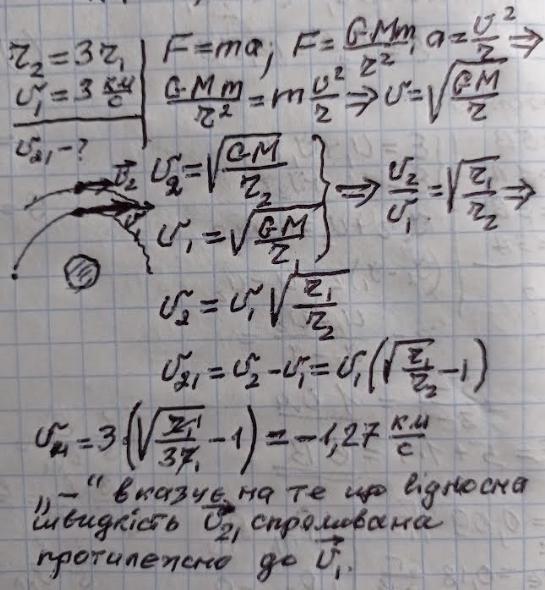 r₂ = 3r₁
υ₁ = 3 км/с
υ₂₁ - ?
F = ma; F = GMm/r², a = υ²/r ⇒
GMm/r² = m υ²/r ⇒ υ = √(GM/r)
υ₂ = √(GM/r₂)
υ₁ = √(GM/r₁) } ⇒ υ₂/υ₁ = √(r₁/r₂) ⇒
υ₂ = υ₁ √(r₁/r₂)
υ₂₁ = υ₂ - υ₁ = υ₁(√(r₁/r₂) - 1)
υ₂₁ = 3·(√(r₁/3r₁) - 1) = -1,27 км/с
„-“ вказує на те що відносна
швидкість υ⃗₂₁ спрямована
протилежно до υ⃗₁.